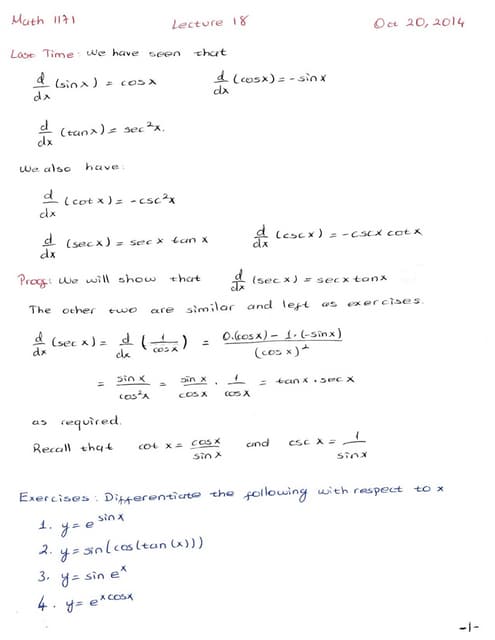 Math 1171 Lecture 18 Oct 20, 2014
Last Time: We have seen that
d/dx (sinx) = cosx d/dx (cosx) = -sinx
d/dx (tanx) = sec²x.
We also have:
d/dx (cotx) = -csc²x
d/dx (secx) = secx tanx d/dx (cscx) = -cscx cotx
Proof: We will show that d/dx (secx) = secx tanx
The other two are similar and left as exercises.
d/dx (secx) = d/dx (1/cosx) = 0.(cosx) - 1.(-sinx)/(cosx)²
= sinx/cos²x = sinx/cosx . 1/cosx = tanx . secx
as required.
Recall that cot x = cosx/sinx and csc x = 1/sinx
Exercises: Differentiate the following with respect to x
1. y = e^sinx
2. y = sin(cos(tan(x)))
3. y = sin e^x
4. y = e^xcosx
-1-